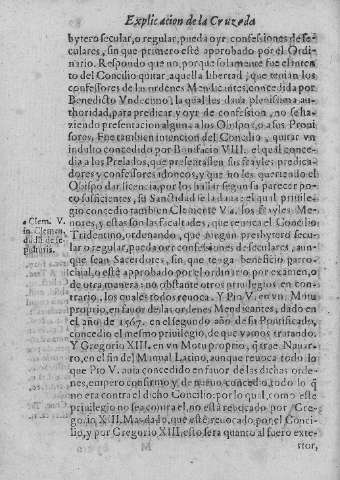 Explicacion de la Cruzada
bytero secular, o regular, pueda oyr confessiones de se-
culares, sin que primero estè aprobado por el Ordi-
nario. Respondo que no, porque solamente fue el inten
to del Concilio quitar, aquella libertad, que tenian los
confessores de las ordenes Mendicantes, concedida por
Benedicto Vndecimo, la qual les daua plenissima au-
thoridad, para predicar, y oyr de confession, no se ha-
ziendo presentacion alguna a los Obispos, o a sus Proui
sores. Fue tambien intencion del Concilio, quitar vn
indulto concedido por Bonifacio VIII. el qual conce-
dia a los Prelados, que presentassen sus frayles predica-
dores y confessores idoneos, y que no les queriendo el
Obispo dar licencia, por los hallar segun su parecer po-
co suficientes, su Sanctidad se la daua: el qual priuile-
gio concedio tambien Clemente V a. los frayles Me-
a Clem. V.
nores, y estas son las facultades, que reuoca el Concilio
in Clemen.
Tridentino, ordenando, que ningun presbytero secu-
dudũ de se-
lar o regular, pueda oyr confessiones de seculares, aun-
pulturis.
que sean Sacerdotes, sin que tenga beneficio parro-
chial, o estè approbado por el ordinario por examen, o
de otra manera: no obstante otros priuilegios en con-
trario, los quales todos reuoca. Y Pio V. en vn Motu
proprio, en fauor de las ordenes Mendicantes, dado en
el año de 1567. en el segundo año de su Pontificado,
concedio el mesmo priuilegio, de que vamos tratando.
Y Gregorio XIII. en vn Motu proprio, q̃ trae Nauar-
ro, en el fin del Manual Latino, aunque reuoca todo lo
que Pio V. auia concedido en fauor de las dichas orde-
nes, empero confirmo y de nueuo concedio todo lo q̃
no era contra el dicho Concilio: por lo qual, como este
priuilegio no sea contra el, no està reuocado por Gre-
gorio XIII. Mas dado, que estè reuocado por el Conci-
lio, y por Gregorio XIII, esto sera quanto al fuero exte-
M
rior,